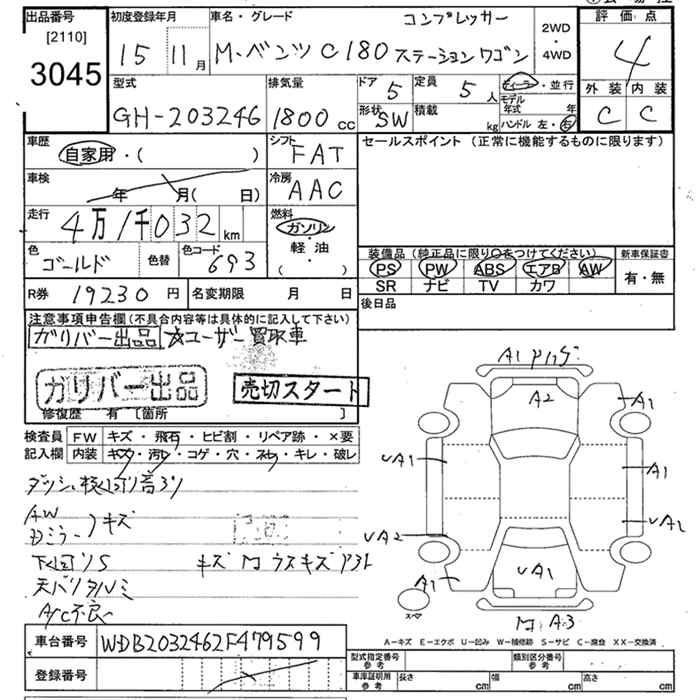 出品番号
[2110]
3045
初度登録年月
15 11月
車名・グレード
コンプレッサー
M・ベンツ C180 ステーションワゴン
2WD
・
4WD
評価点
4
外装 内装
C C
型式
GH-203246
排気量
1800 CC
ドア 5
形状 SW
定員 5 人
積載 kg
ディーラー・並行
モデル年式 年
ハンドル 左・右
車歴
自家用・( )
シフト
FAT
セールスポイント(正常に機能するものに限ります)
車検
年 月( 日)
冷房
AAC
走行
4万1千032 km
燃料
ガソリン
軽・油
( ・ )
色
ゴールド
色替
色コード
693
装備品(純正品に限り○をつけてください)
PS PW ABS エアB AW
SR ナビ TV カワ
新車保証書
有・無
R券 19230 円
名変期限 月 日
後日品
注意事項申告欄(不具合内容等は具体的に記入して下さい)
ガリバー出品 ☆ユーザー買取車
ガリバー出品
売切スタート
修復歴 有 [箇所 ]
検査員記入欄
FW キズ・飛石・ヒビ割・リペア跡・×要
内装 キズ・汚レ・コゲ・穴・スレ・キレ・破レ
AW
ドミラー キズ
天バリタルミ
A/C不良
A1
A2
A1
UA1
A1
UA2
A1
UA1
A3
スペア
A-キズ E-エクボ U-凹み W-補修跡 S-サビ C-腐食 XX-交換済
車台番号 WDB2032462F479599
登録番号
型式指定番号
参考
類別区分番号
参考
車庫証明用
参考
長さ cm 幅 cm 高さ cm